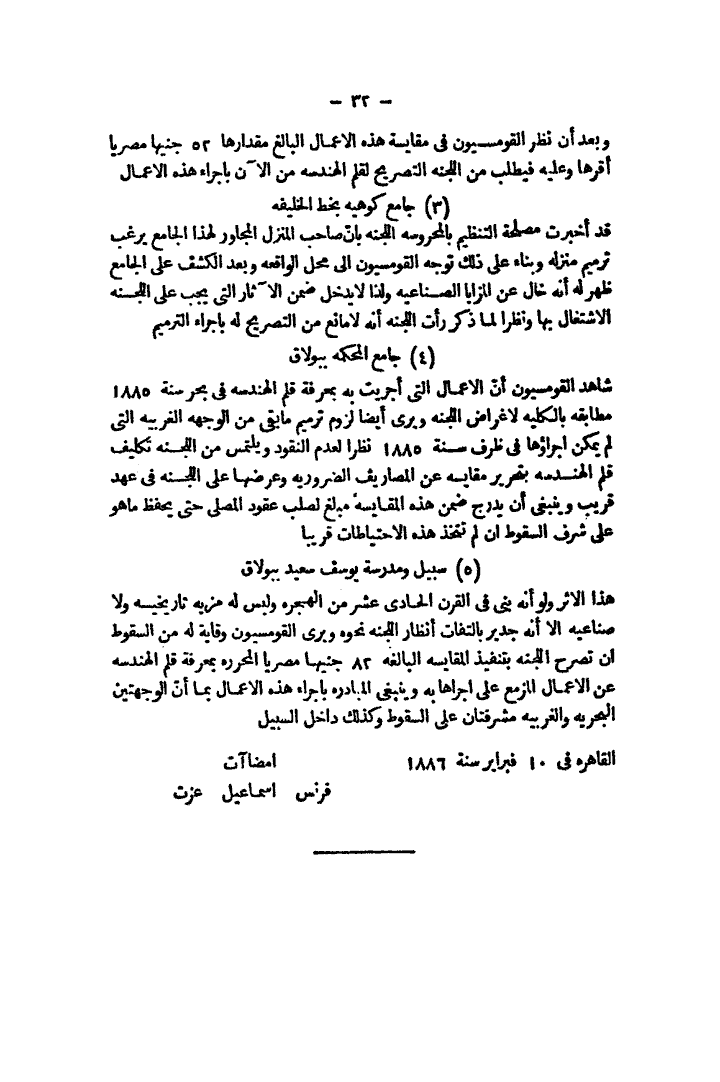 - ٣٢ -
وبعد أن نظر القومسيون فى مقايسة هذه الاعمال البالغ مقدارها ٥٢ جنيها مصريا
أقرها وعليه فيطلب من اللجنه التصريح لقلم الهندسه من الآن باجراء هذه الاعمال
(٣) جامع كوهيه بخط الخليفه
قد أخبرت مصلحة التنظيم بالمحروسه اللجنه بانّ صاحب المنزل المجاور لهذا الجامع يرغب
ترميم منزله وبناء على ذلك توجه القومسيون الى محل الواقعه وبعد الكشف على الجامع
ظهر له أنه خال عن المزايا الصناعيه ولذا لايدخل ضمن الآثار التى يجب على اللجنه
الاشتغال بها ونظرا لما ذكر رأت اللجنه أنه لامانع من التصريح له باجراء الترميم
(٤) جامع المحكمه ببولاق
شاهد القومسيون أنّ الاعمال التى أجريت به بمعرفة قلم الهندسه فى بحر سنة ١٨٨٥
مطابقه بالكليه لاغراض اللجنه ويرى أيضا لزوم ترميم مابقى من الوجهه الغربيه التى
لم يمكن اجراؤها فى ظرف سنة ١٨٨٥ نظرا لعدم النقود ويلتمس من اللجنه تكليف
قلم الهندسه بتحرير مقايسه عن المصاريف الضروريه وعرضها على اللجنه فى عهد
قريب وينبغى أن يدرج ضمن هذه المقايسة مبلغ لصلب عقود المصلى حتى يحفظ ماهو
على شرف السقوط ان لم تتخذ هذه الاحتياطات قريبا
(٥) سبيل ومدرسة يوسف سعيد ببولاق
هذا الاثر ولو أنه بنى فى القرن الحادى عشر من الهجره وليس له مزيه تاريخيه ولا
صناعيه الا أنه جدير بالتفات أنظار اللجنه نحوه ويرى القومسيون وقاية له من السقوط
ان تصرح اللجنه بتنفيذ المقايسه البالغه ٨٢ جنيها مصريا المحرره بمعرفة قلم الهندسه
عن الاعمال المزمع على اجراها به وينبغى المبادره باجراء هذه الاعمال بما أنّ الوجهتين
البحريه والغربيه مشرفتان على السقوط وكذلك داخل السبيل
القاهره فى ١٠ فبراير سنة ١٨٨٦ امضاآت
فرنس اسماعيل عزت